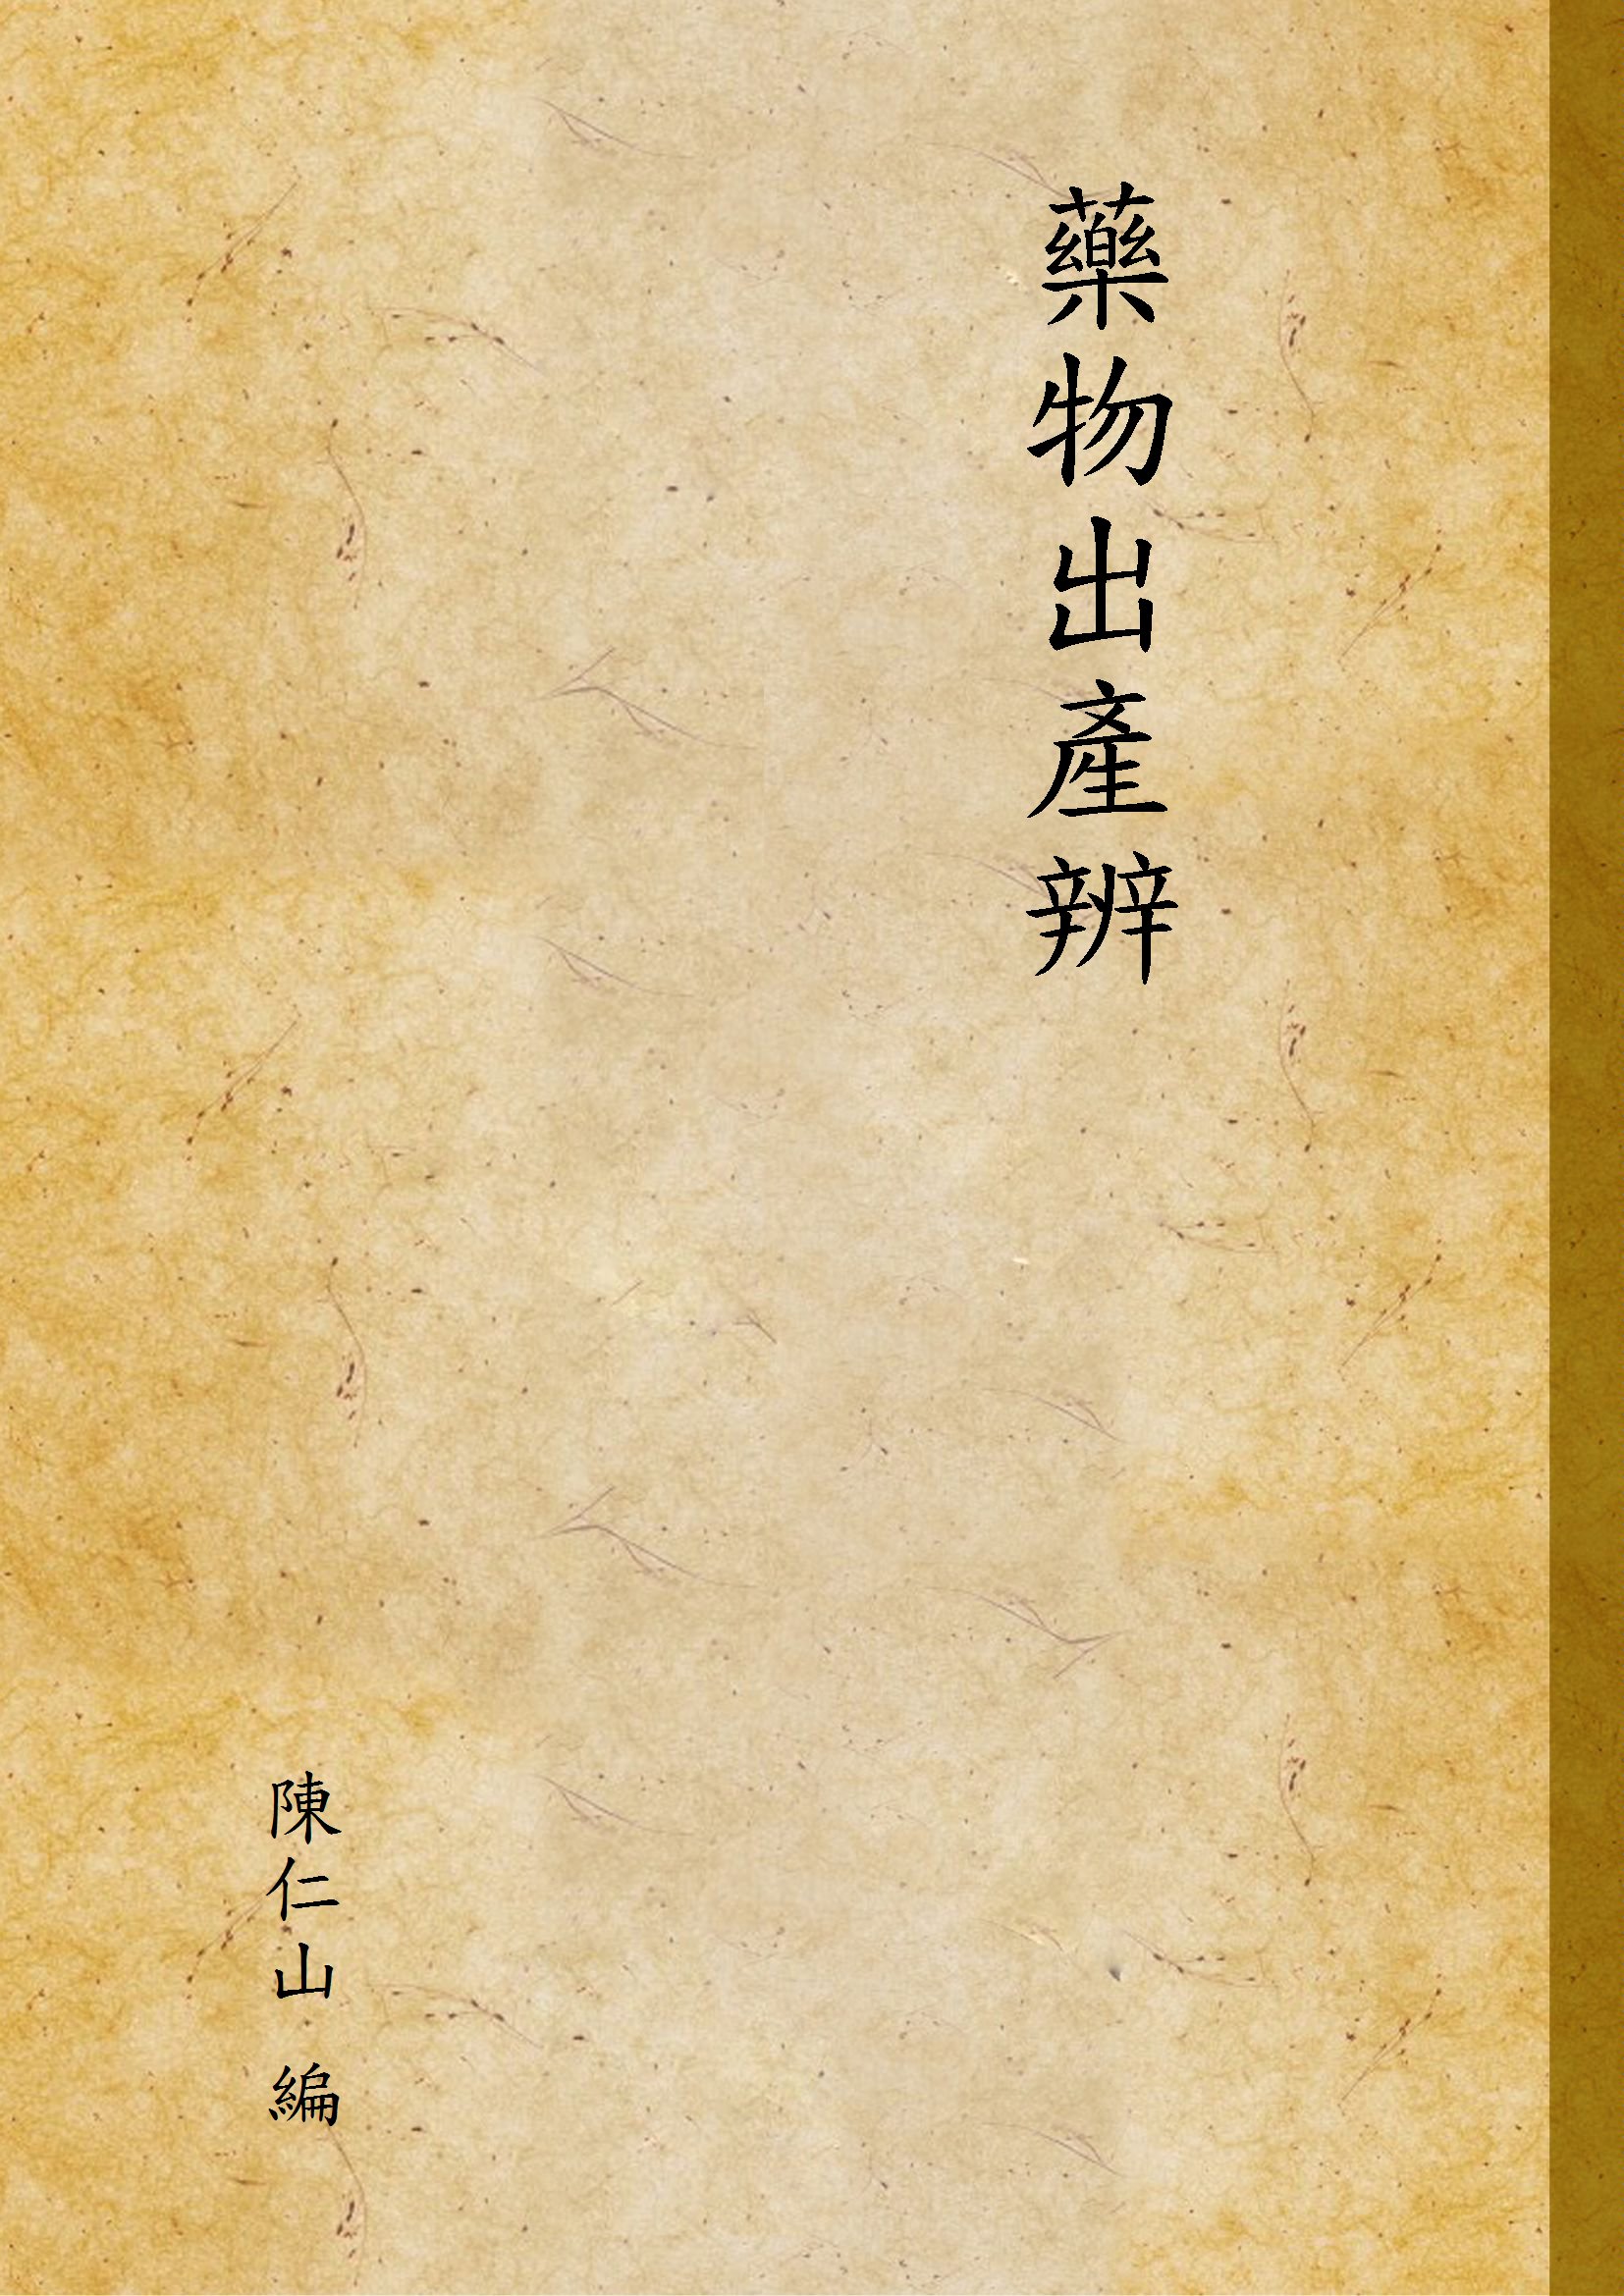 藥物出產辨
陳仁山 編